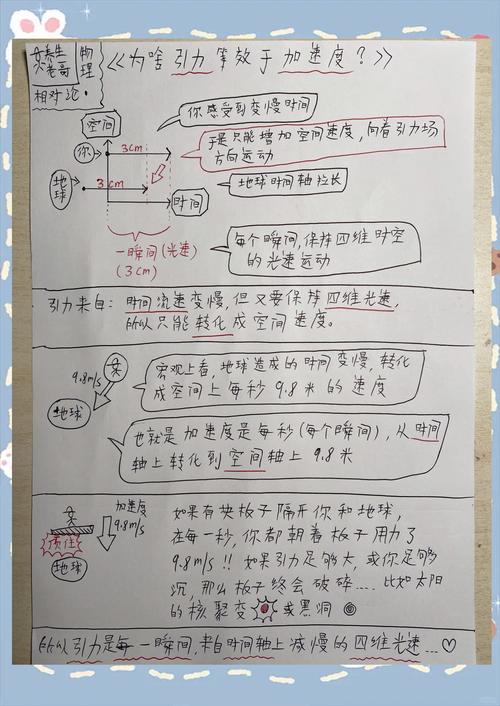 物理
《为啥引力等效于加速度?》
相对论.
空间
你感受到变慢时间
你
3cm
于是只能增加空间速度,向着引力场
方向运动
地球
3cm
时间
地球时间轴拉长
一瞬间(光速)
(3cm)
每个瞬间,保持四维时空
的光速运动
引力来自:时间流速变慢,但又要保持四维光速,
所以只能转化成空间速度。
9.8m/s
地球
宏观上看,地球造成的时间变慢,转化
成空间上每秒9.8米的速度
也就是加速度是每秒(每个瞬间),从时间
轴上转化到空间轴上9.8米
加速度
9.8m/s
地球
如果有块板子隔开你和地球,
在每一秒,你都朝着板子用力了
9.8m/s!!如果引力足够大,或你足够
沉,那么板子终会破碎....比如太阳
的核聚变或黑洞
所以引力是每一瞬间,来自时间轴上减慢的四维光速...♡